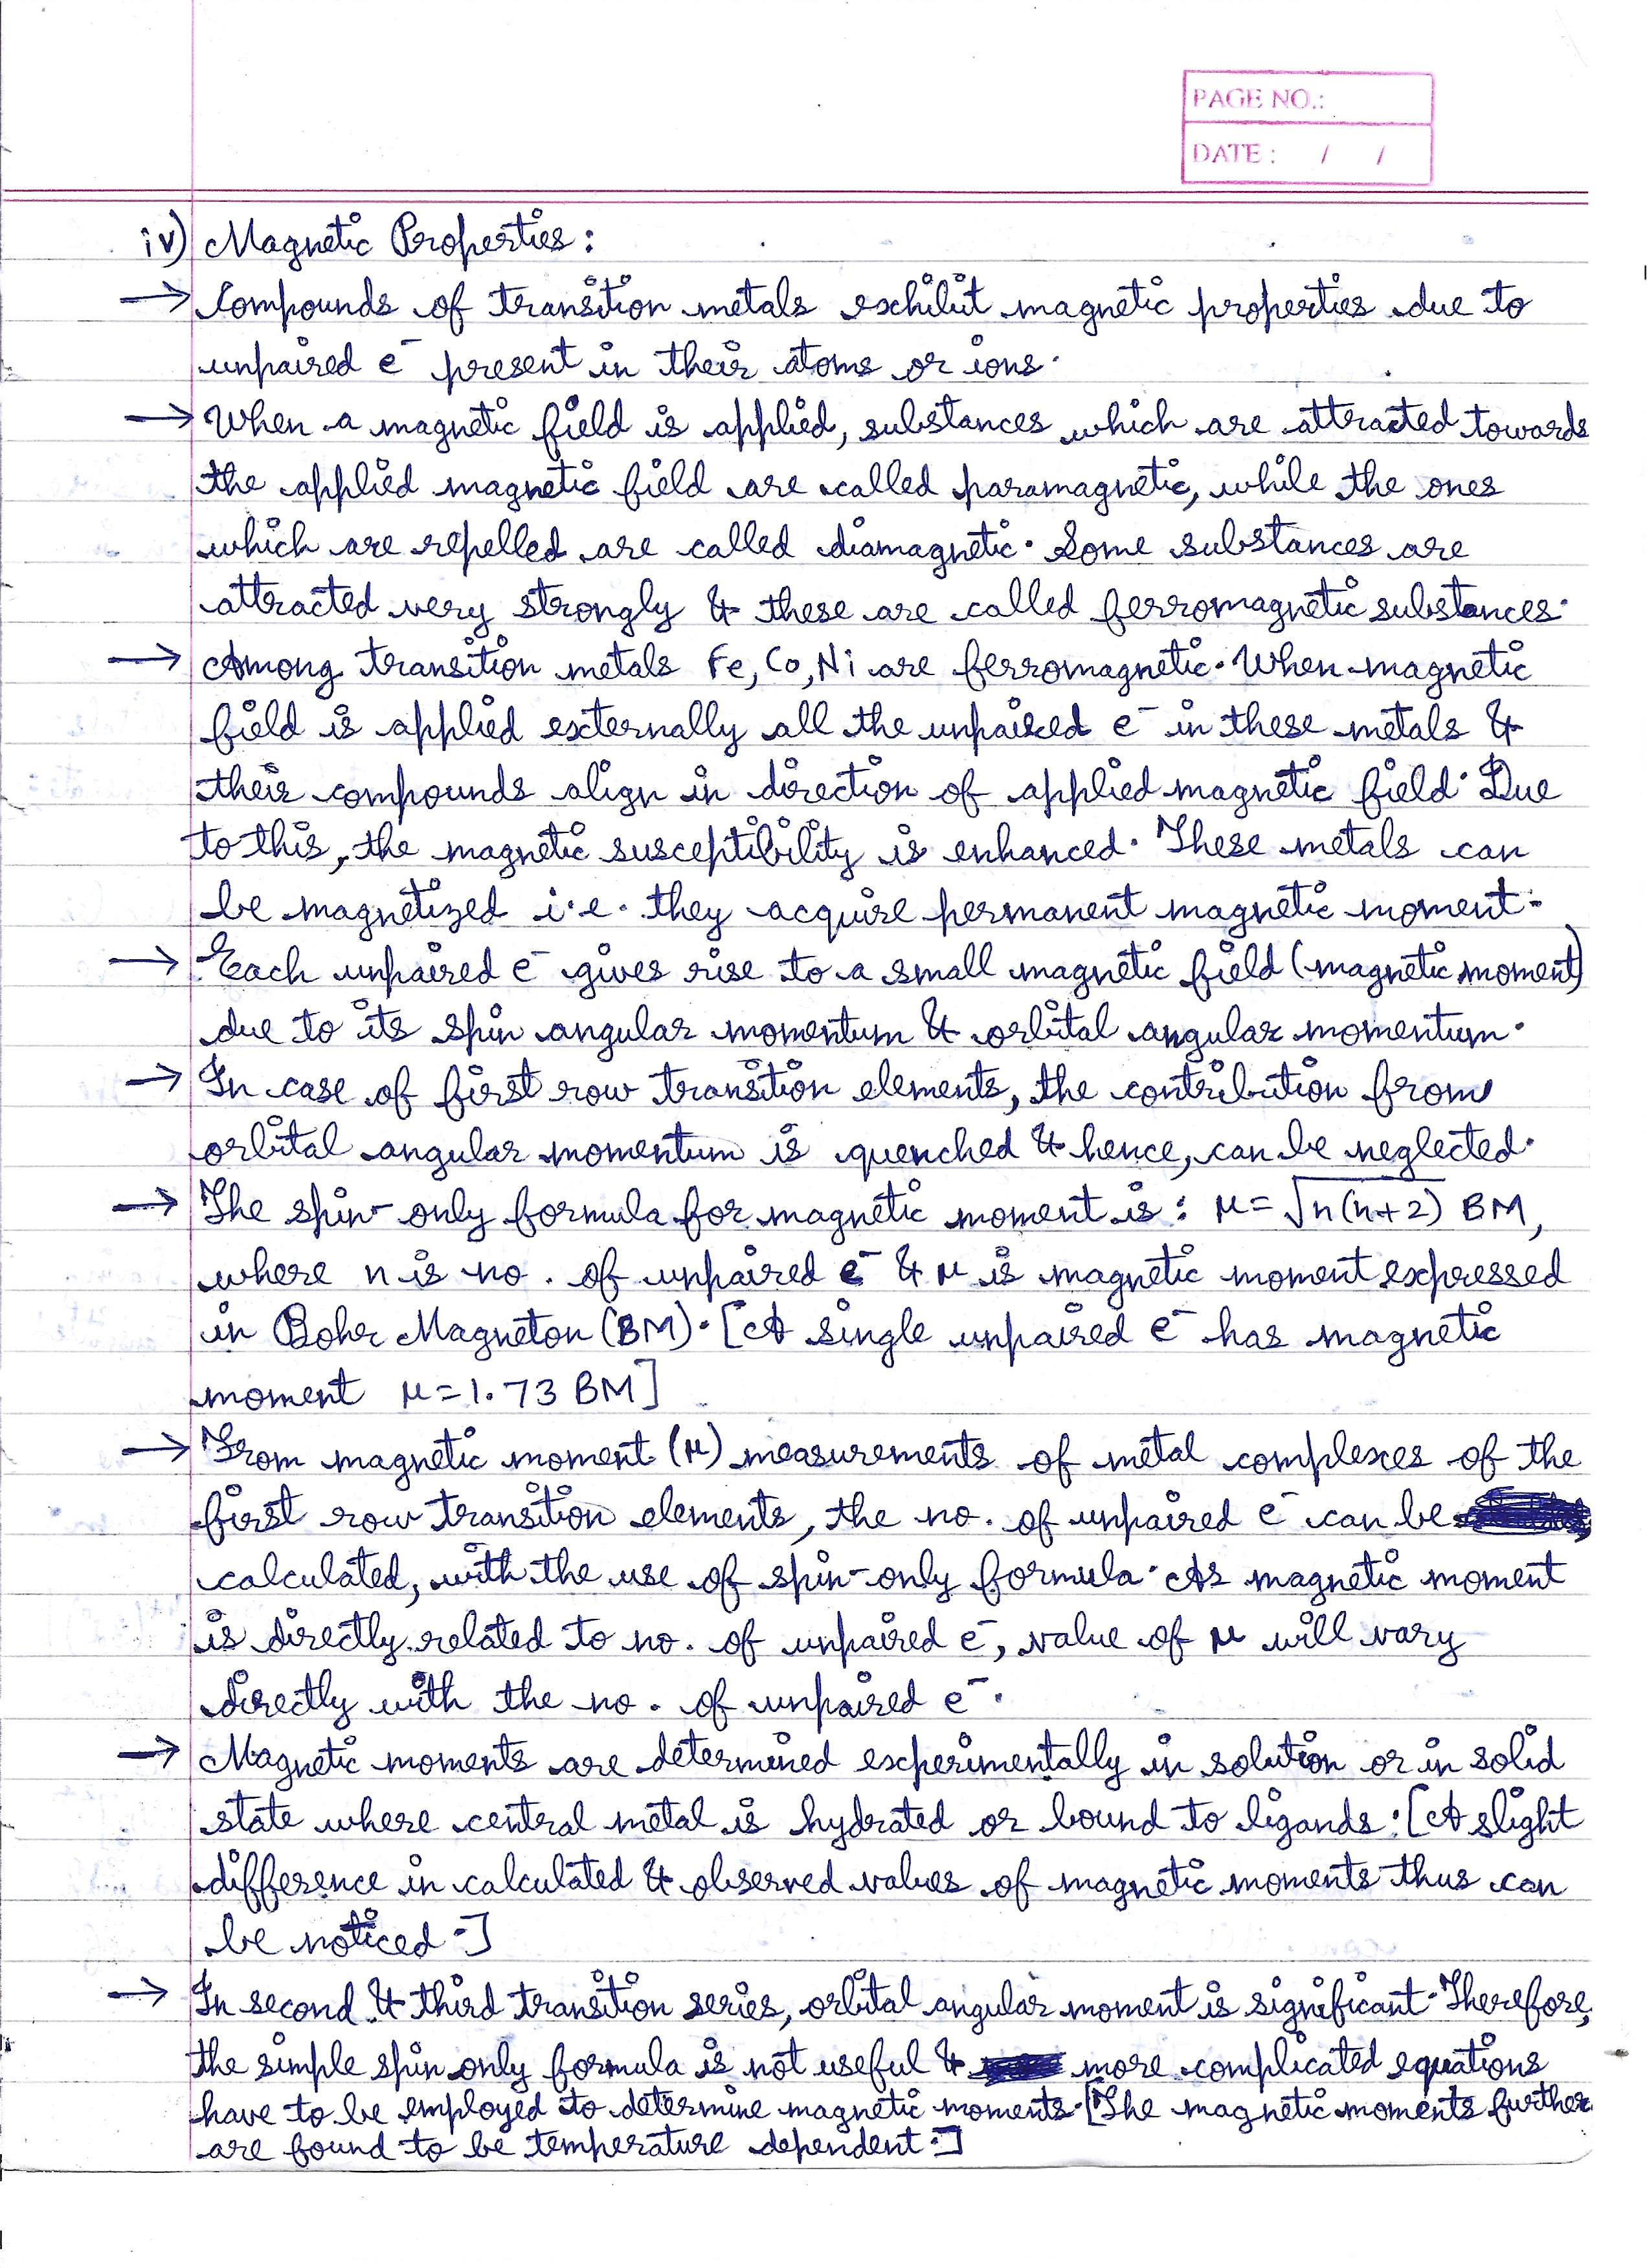 PAGE NO.:
DATE : / /
iv) Magnetic Properties :
→ Compounds of transition metals exhibit magnetic properties due to
unpaired e⁻ present in their atoms or ions.
→ When a magnetic field is applied, substances which are attracted towards
the applied magnetic field are called paramagnetic, while the ones
which are repelled are called diamagnetic. Some substances are
attracted very strongly & these are called ferromagnetic substances.
→ Among transition metals Fe, Co, Ni are ferromagnetic. When magnetic
field is applied externally all the unpaired e⁻ in these metals &
their compounds align in direction of applied magnetic field. Due
to this, the magnetic susceptibility is enhanced. These metals can
be magnetized i.e. they acquire permanent magnetic moment.
→ Each unpaired e⁻ gives rise to a small magnetic field (magnetic moment)
due to its spin angular momentum & orbital angular momentum.
→ In case of first row transition elements, the contribution from
orbital angular momentum is quenched & hence, can be neglected.
→ The spin-only formula for magnetic moment is : μ = √n(n+2) BM,
where n is no. of unpaired e⁻ & μ is magnetic moment expressed
in Bohr Magneton (BM). [A single unpaired e⁻ has magnetic
moment μ = 1.73 BM]
→ From magnetic moment (μ) measurements of metal complexes of the
first row transition elements, the no. of unpaired e⁻ can be
calculated, with the use of spin-only formula. As magnetic moment
is directly related to no. of unpaired e⁻, value of μ will vary
directly with the no. of unpaired e⁻.
→ Magnetic moments are determined experimentally in solution or in solid
state where central metal is hydrated or bound to ligands. [A slight
difference in calculated & observed values of magnetic moments thus can
be noticed.]
→ In second & third transition series, orbital angular moment is significant. Therefore,
the simple spin only formula is not useful & more complicated equations
have to be employed to determine magnetic moments. [The magnetic moments further
are found to be temperature dependent.]